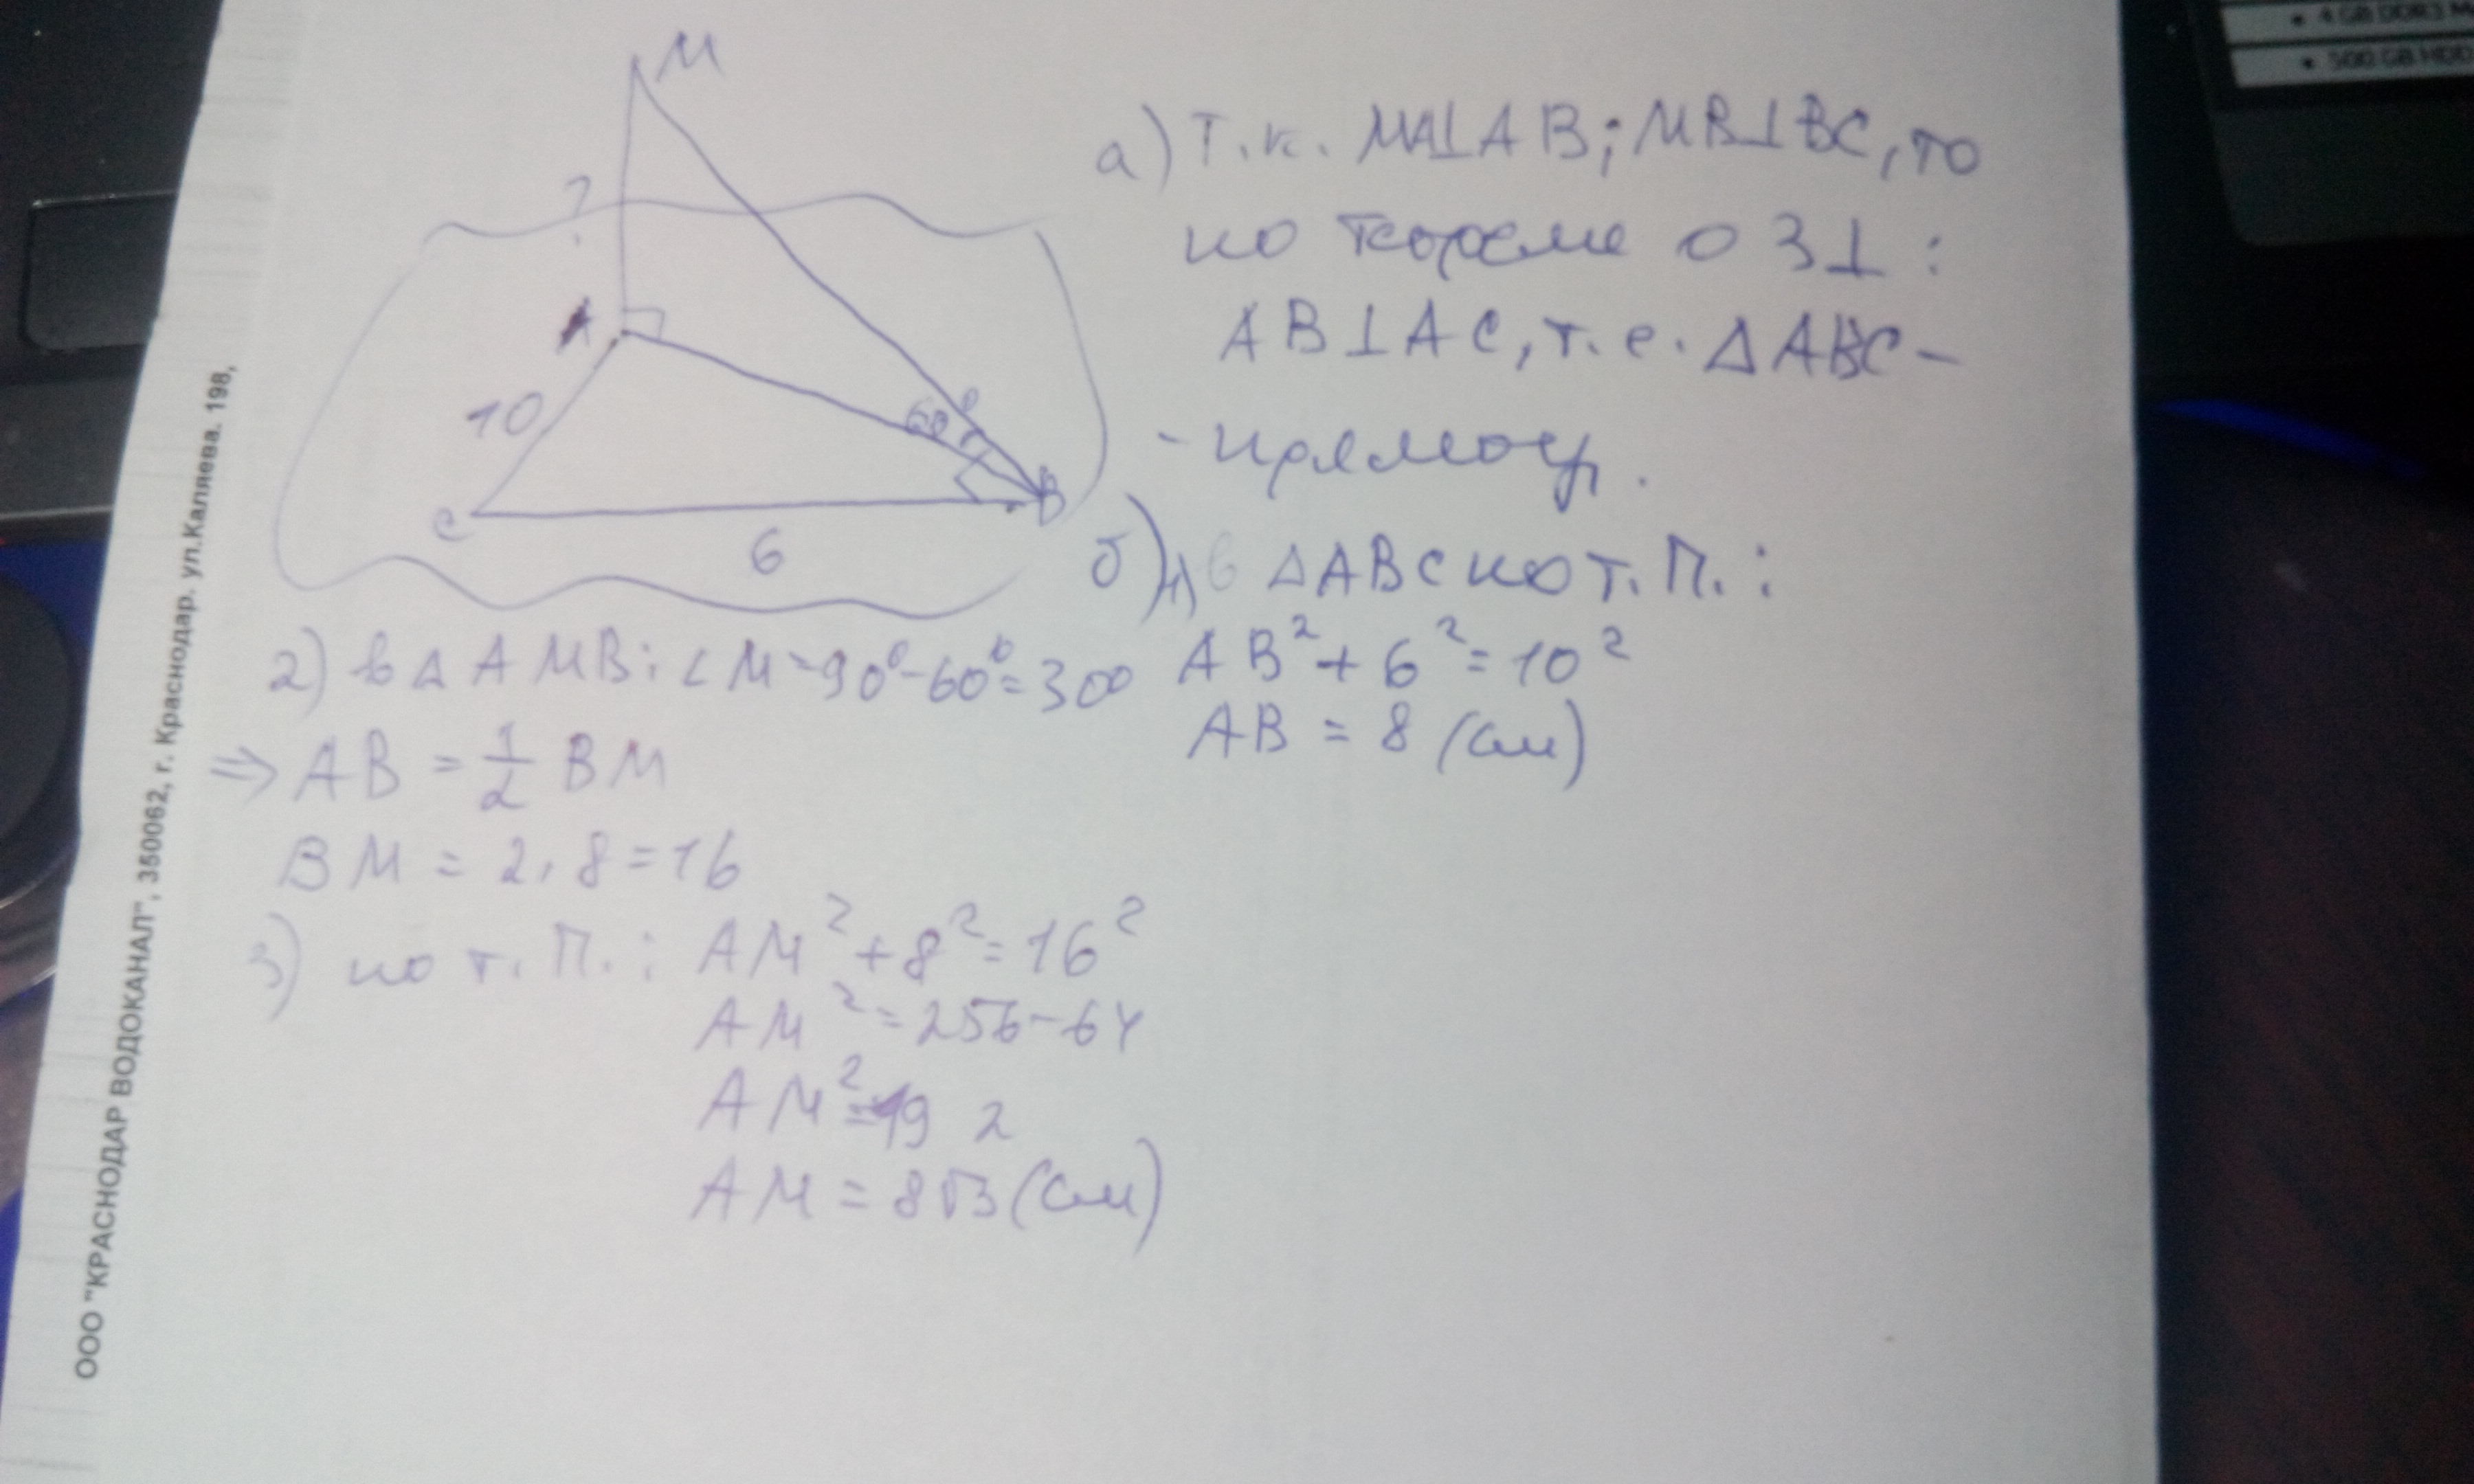 M
?
A
10
60°
C
B
6
а) Т.к. MA⊥AB; MB⊥BC, то
по теореме о 3⊥:
AB⊥AC, т.е. ΔABC-
-прямоуг.
б) 1) В ΔABC по т. П.:
AB²+6²=10²
AB = 8 (см)
2) в Δ AMB: ∠M=90°-60°=30°
⇒ AB = 1/2 BM
BM = 2·8=16
3) по т. П.: AM²+8²=16²
AM²=256-64
AM²=192
AM = 8√3 (см)
ООО "КРАСНОДАР ВОДОКАНАЛ", 350062, г. Краснодар. ул.Каляева. 198,
• 4 GB DDR3
• 500 GB HDD